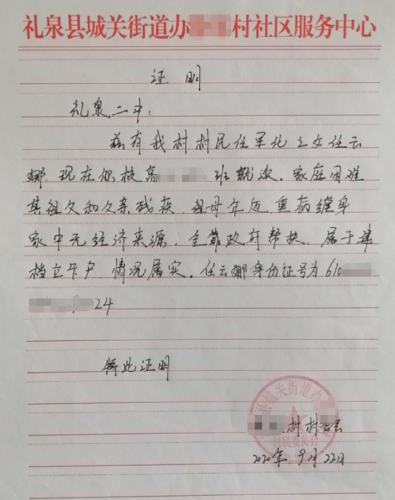 礼泉县城关街道办村社区服务中心
证明
礼泉二中:
兹有我村村民任军化之女任云
娜,现在你校高班就读。家庭困难
其祖父和父亲残疾,祖母年迈,重病缠身
家中无经济来源,全靠政府帮扶,属于建
档立卡户 情况属实,任云娜身份证号为610
24
特此证明
县城关街道办
村民委员会
村村委会
2020年9月22日